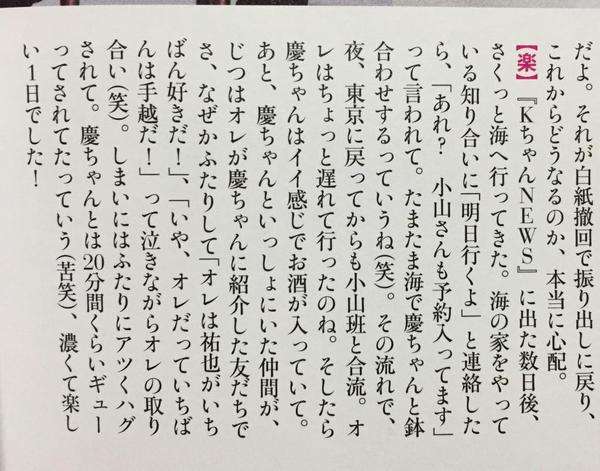 だよ。それが白紙撤回で振り出しに戻り、
これからどうなるのか、本当に心配。
【楽】『KちゃんNEWS』に出た数日後、
さくっと海へ行ってきた。海の家をやって
いる知り合いに「明日行くよ」と連絡した
ら、「あれ？　小山さんも予約入ってます」
って言われて。たまたま海で慶ちゃんと鉢
合わせするっていうね(笑)。その流れで、
夜、東京に戻ってからも小山班と合流。オ
レはちょっと遅れて行ったのね。そしたら
慶ちゃんはイイ感じでお酒が入っていて。
あと、慶ちゃんといっしょにいた仲間が、
じつはオレが慶ちゃんに紹介した友だちで
さ、なぜかふたりして「オレは祐也がいち
ばん好きだ！」、「いや、オレだっていちば
んは手越だ！」って泣きながらオレの取り
合い(笑)。しまいにはふたりにアツくハグ
されて。慶ちゃんとは20分間くらいギュー
ってされてたっていう(苦笑)、濃くて楽し
い1日でした！